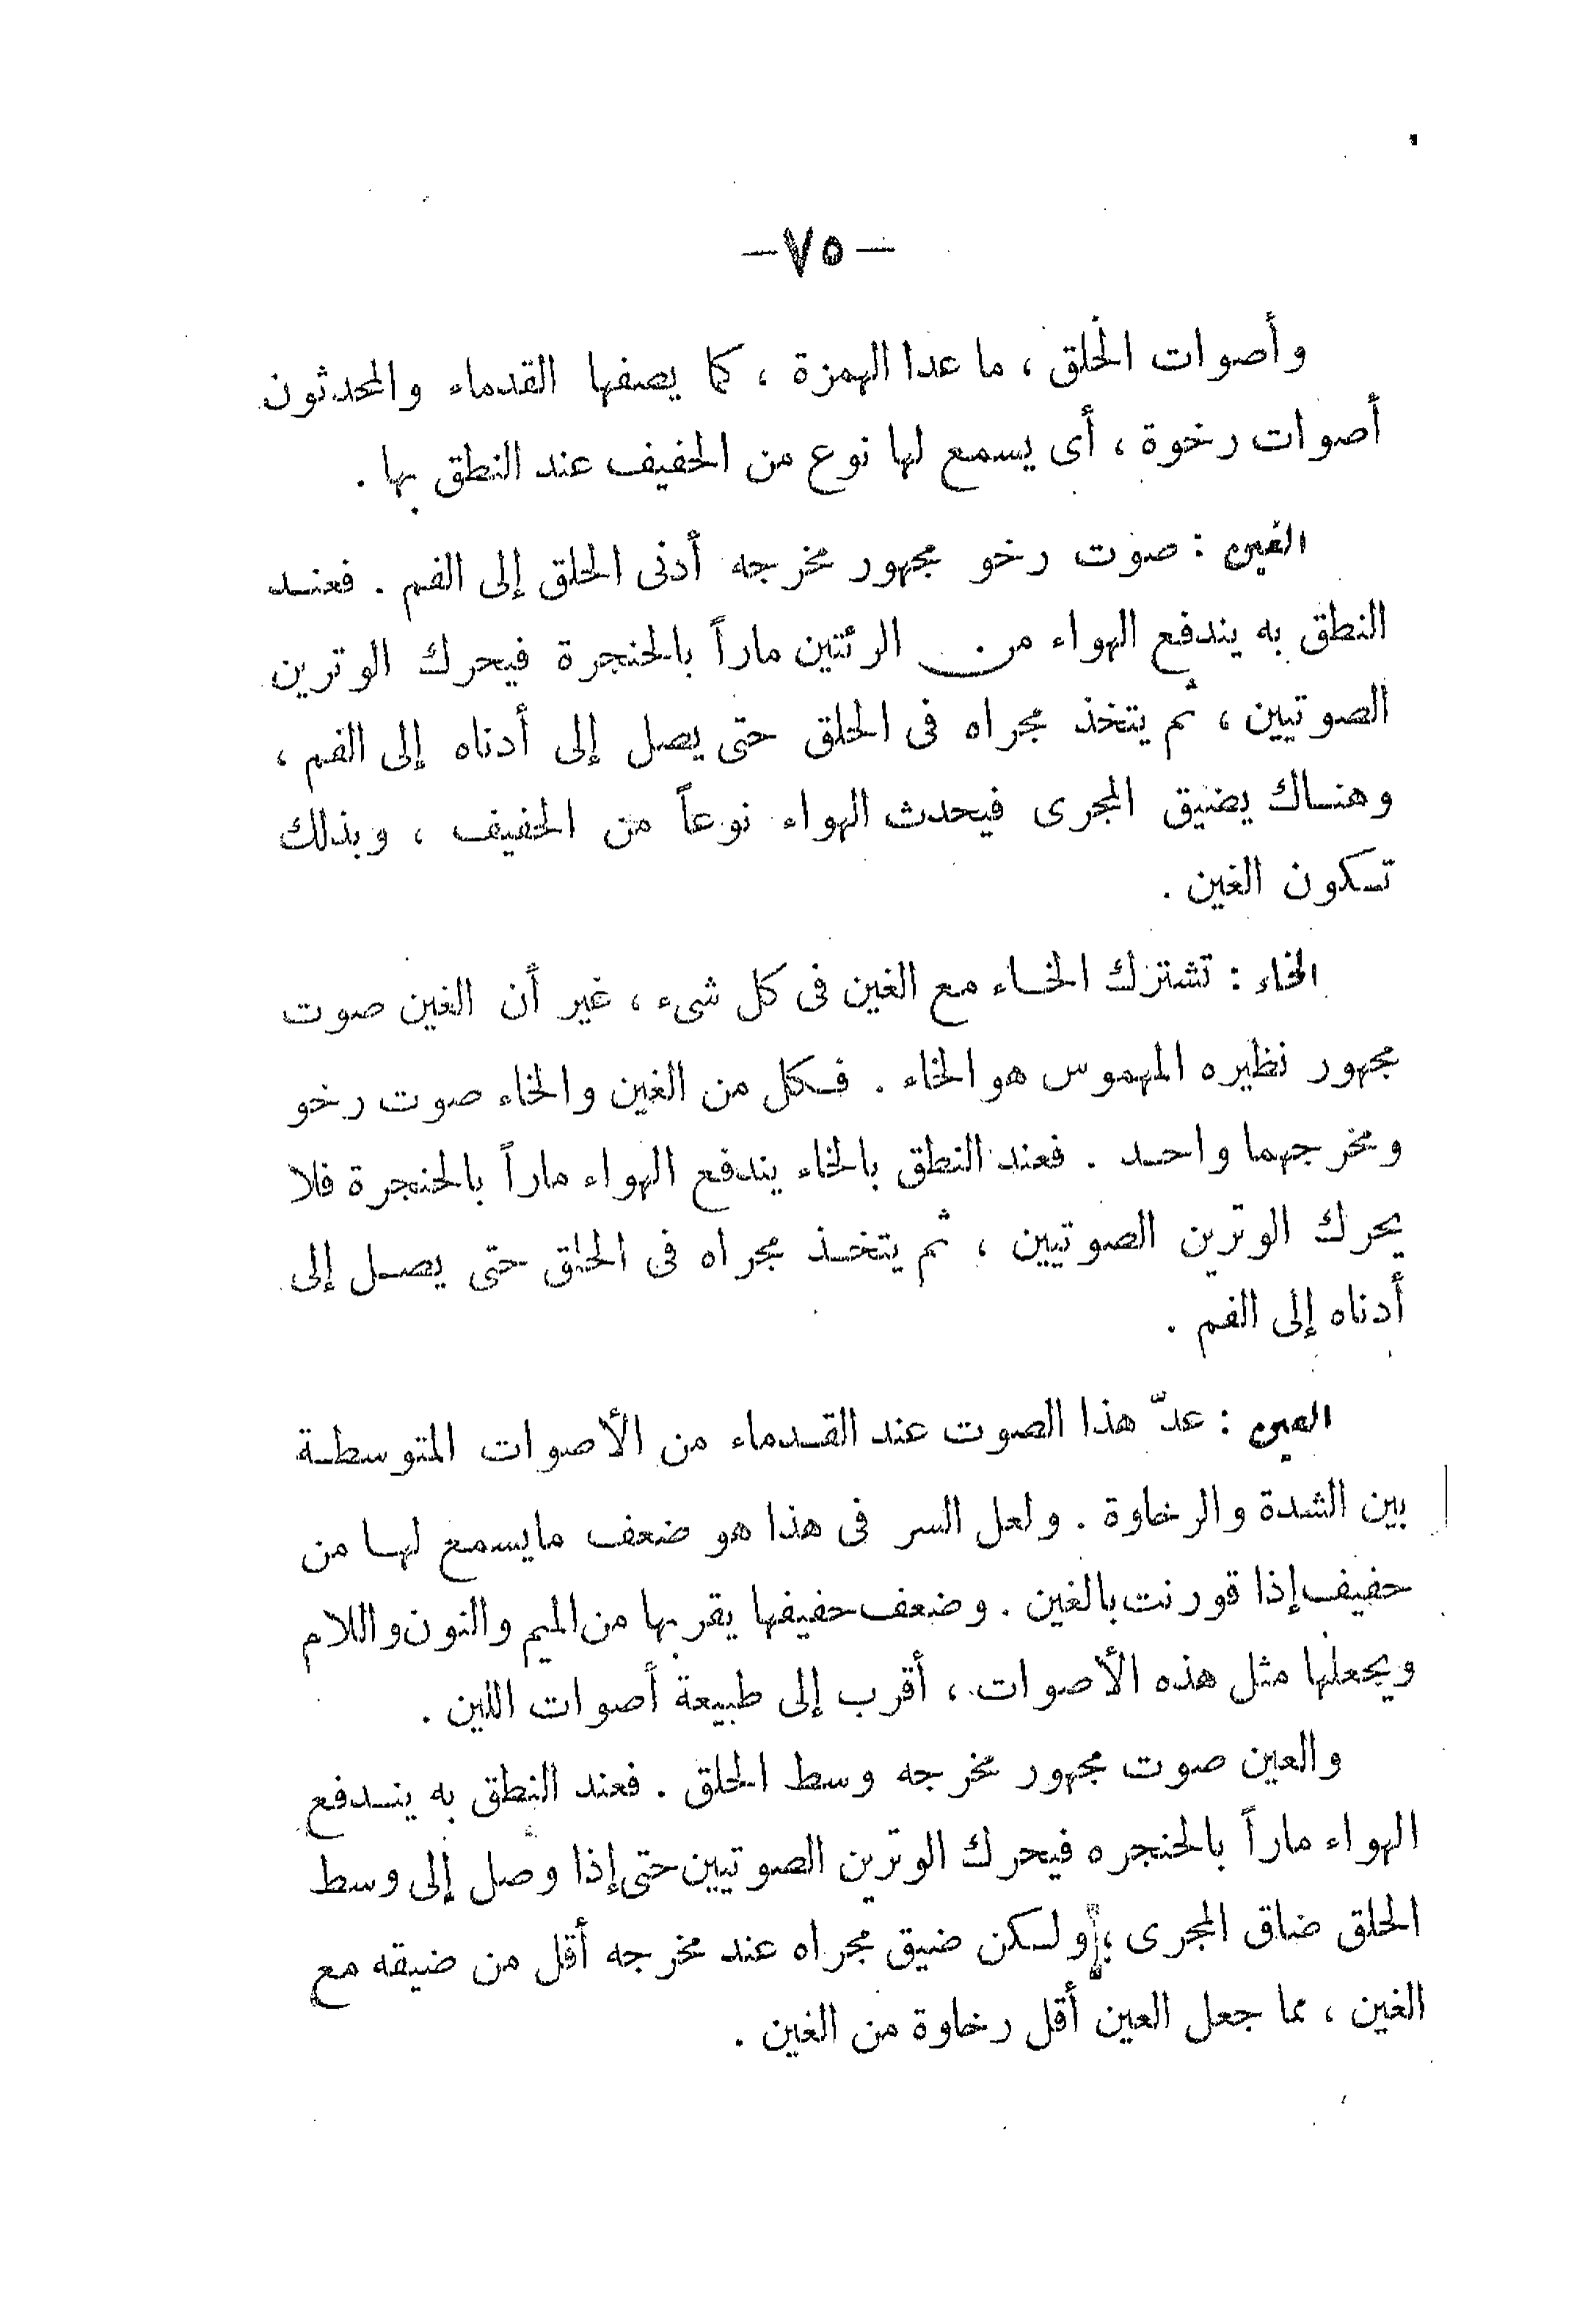 — ٧٥ —
وأصوات الحلق ، ما عدا الهمزة ، كما يصفها القدماء والمحدثون
أصوات رخوة ، أى يسمع لها نوع من الحفيف عند النطق بها .
الغين : صوت رخو مجهور مخرجه أدنى الحلق إلى الفم . فعنـد
النطق به يندفع الهواء من الرئتين ماراً بالحنجرة فيحرك الوترين
الصوتيين ، ثم يتخذ مجراه فى الحلق حتى يصل إلى أدناه إلى الفم ،
وهنـاك يضيق المجرى فيحدث الهواء نوعاً من الحفيف ، وبذلك
تـكون الغين .
الخاء : تشترك الخـاء مع الغين فى كل شىء ، غير أن الغين صوت
مجهور نظيره المهموس هو الخاء . فـكل من الغين والخاء صوت رخو
ومخرجهما واحـد . فعند النطق بالخاء يندفع الهواء ماراً بالحنجرة فلا
يحرك الوترين الصوتيين ، ثم يتخـذ مجراه فى الحلق حتى يصـل إلى
أدناه إلى الفم .
العين : عدّ هذا الصوت عند القـدماء من الأصوات المتوسطـة
بين الشدة والرخاوة . ولعل السر فى هذا هو ضعف مايسمع لهـا من
حفيف إذا قورنت بالغين . وضعف حفيفها يقربها من الميم والنون واللام
ويجعلها مثل هذه الأصوات ، أقرب إلى طبيعة أصوات اللين .
والعين صوت مجهور مخرجه وسط الحلق . فعند النطق به ينـدفع
الهواء ماراً بالحنجره فيحرك الوترين الصوتيين حتى إذا وصل إلى وسط
الحلق ضاق المجرى ؛ ولـكن ضيق مجراه عند مخرجه أقل من ضيقه مع
الغين ، مما جعل العين أقل رخاوة من الغين .